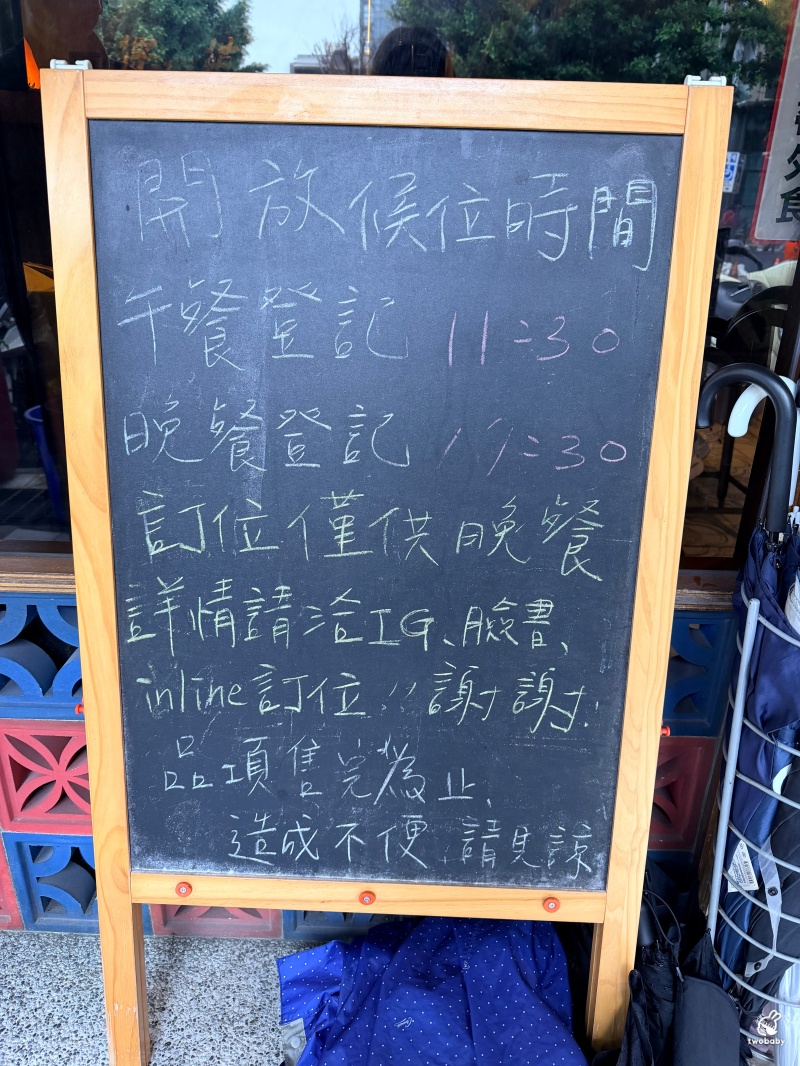 開放候位時間
午餐登記 11:30
晚餐登記 17:30
訂位僅供晚餐
詳情請洽IG、臉書、
inline訂位!! 謝謝!
品項售完為止、
造成不便、請見諒
外食
twobaby